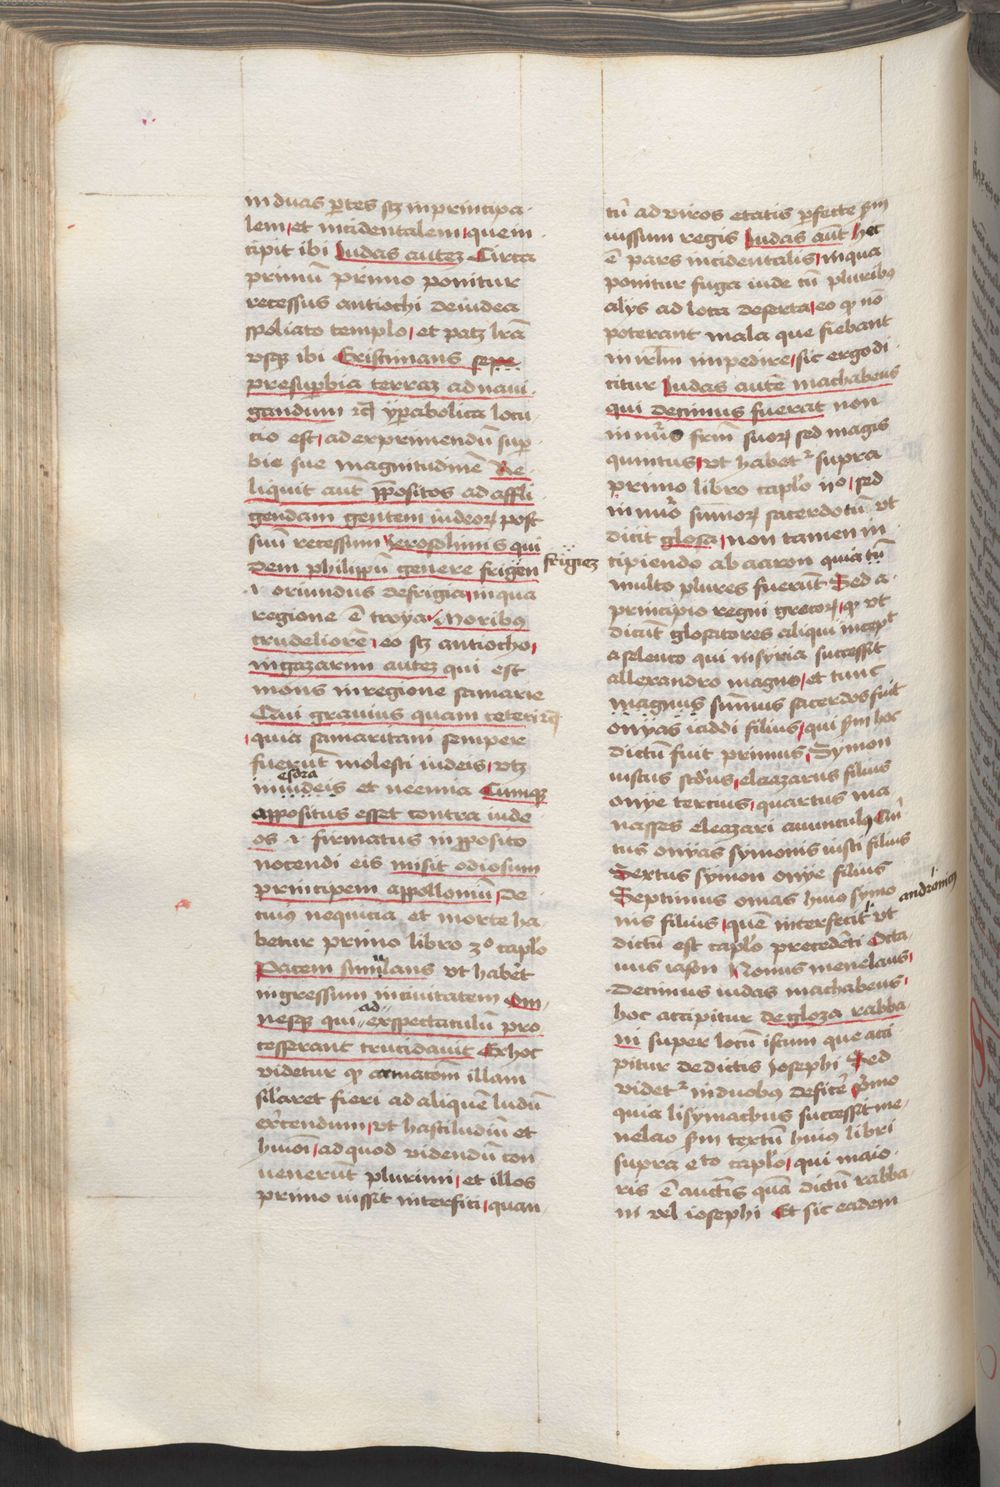 in duas p̄tes scʒ in principa-
lem et incidentalem quem in-
cipit ibi Iudas autez Circa
primū primo ponitur
recessus antiochi de iudea
spoliato templo et patʒ lr̄a
vsqʒ ibi Existimans se
pre supbia terraz ad naui-
gandum rc̄ ypabolica locu
cio est ad exprimendū sup-
bie sue magnitudinē Re-
liquit aūt p̄positos ad affli
gendam gentem iudeoꝝ post
suū recessum Ierosolimis qui
dem philippū genere frigen
.i. oriundus de frigia in qua
regione ē troya Moribus
crudeliorē eo scʒ antiocho
in gazarim autez qui est
mons in regione samarie
Qui grauius quam ceteri rc̄
quia samaritani semper
fuerūt molesti iudeis vtʒ
esdra
in iudeis et neemia Cumqʒ
appositus esset contra iude
os .i. firmatus in p̄posito
nocendi eis misit odiosum
principem appolloniū De
cuiꝰ nequicia et morte ha
betur primo libro 3º caplo
Pacem simulans vt habēt
ingressum in ciuitatem Om-
ad
nesqʒ qui exspectaculū pro
cesserant trucidauit Ex hoc
videtur ꝙ armatorū illam
sil'aret fieri ad aliquē ludū
exercendum vt hastiludiū et
huiōi ad quod videndū con
uenerūt plurimi et illos
primo iussit interfici quan
frigiez
tū ad viros etatis pfecte scdm
iussum regis Iudas aūt hec
ē pars incidentalis in qua
ponitur fuga iude cū pluribꝰ
alijs ad loca deserta eo ꝙ nō
poterant mala que fiebant
in irlm impedire sic ergo di-
citur Iudas autē machabeus
qui decimus fuerat non
in nūo frm̄ suoꝝ sed magis
quintus vt habetʳ supra
primo libro caplo ijº sed
in nūo sumoꝝ sacerdotū vt
dicit glosa non tamen in-
cipiendo ab aaron quia tū
multo plures fuerūt Sed a
principio regni grecoꝝ ꝙ vt
dicūt glosatores aliqui incepit
a seleuco qui in syria successit
allexandro magno et tunc
magnus summus sacerdos fuit
onyas iaddi filius qui scdm hoc
dictū fuit primus Symon
iustus scdus eleazarus filius
onye tercius quartus ma
nasses eleazari auunculꝰ Quī
tus onyas symonis iusti filius
Sextus symon onye filius
Septimus onias huiꝰ symo
nis filius quē interfecit vt
andronicus
dictū est caplo precedēti Octa-
uus iason Nonus menelaus
Decimus iudas machabeus
hoc accipitur de gloza rabba
ni super locū istum que acci
pitur de dictis Iosephi Sed
videtʳ in duobꝰ deficere p̄mo
quia lisymachus successit me-
nelao scdm textū huiꝰ libri
supra eto caplo qui maio-
ris ē auctīs quā dictū rabba-
ni vel iosephi Et sic eadem